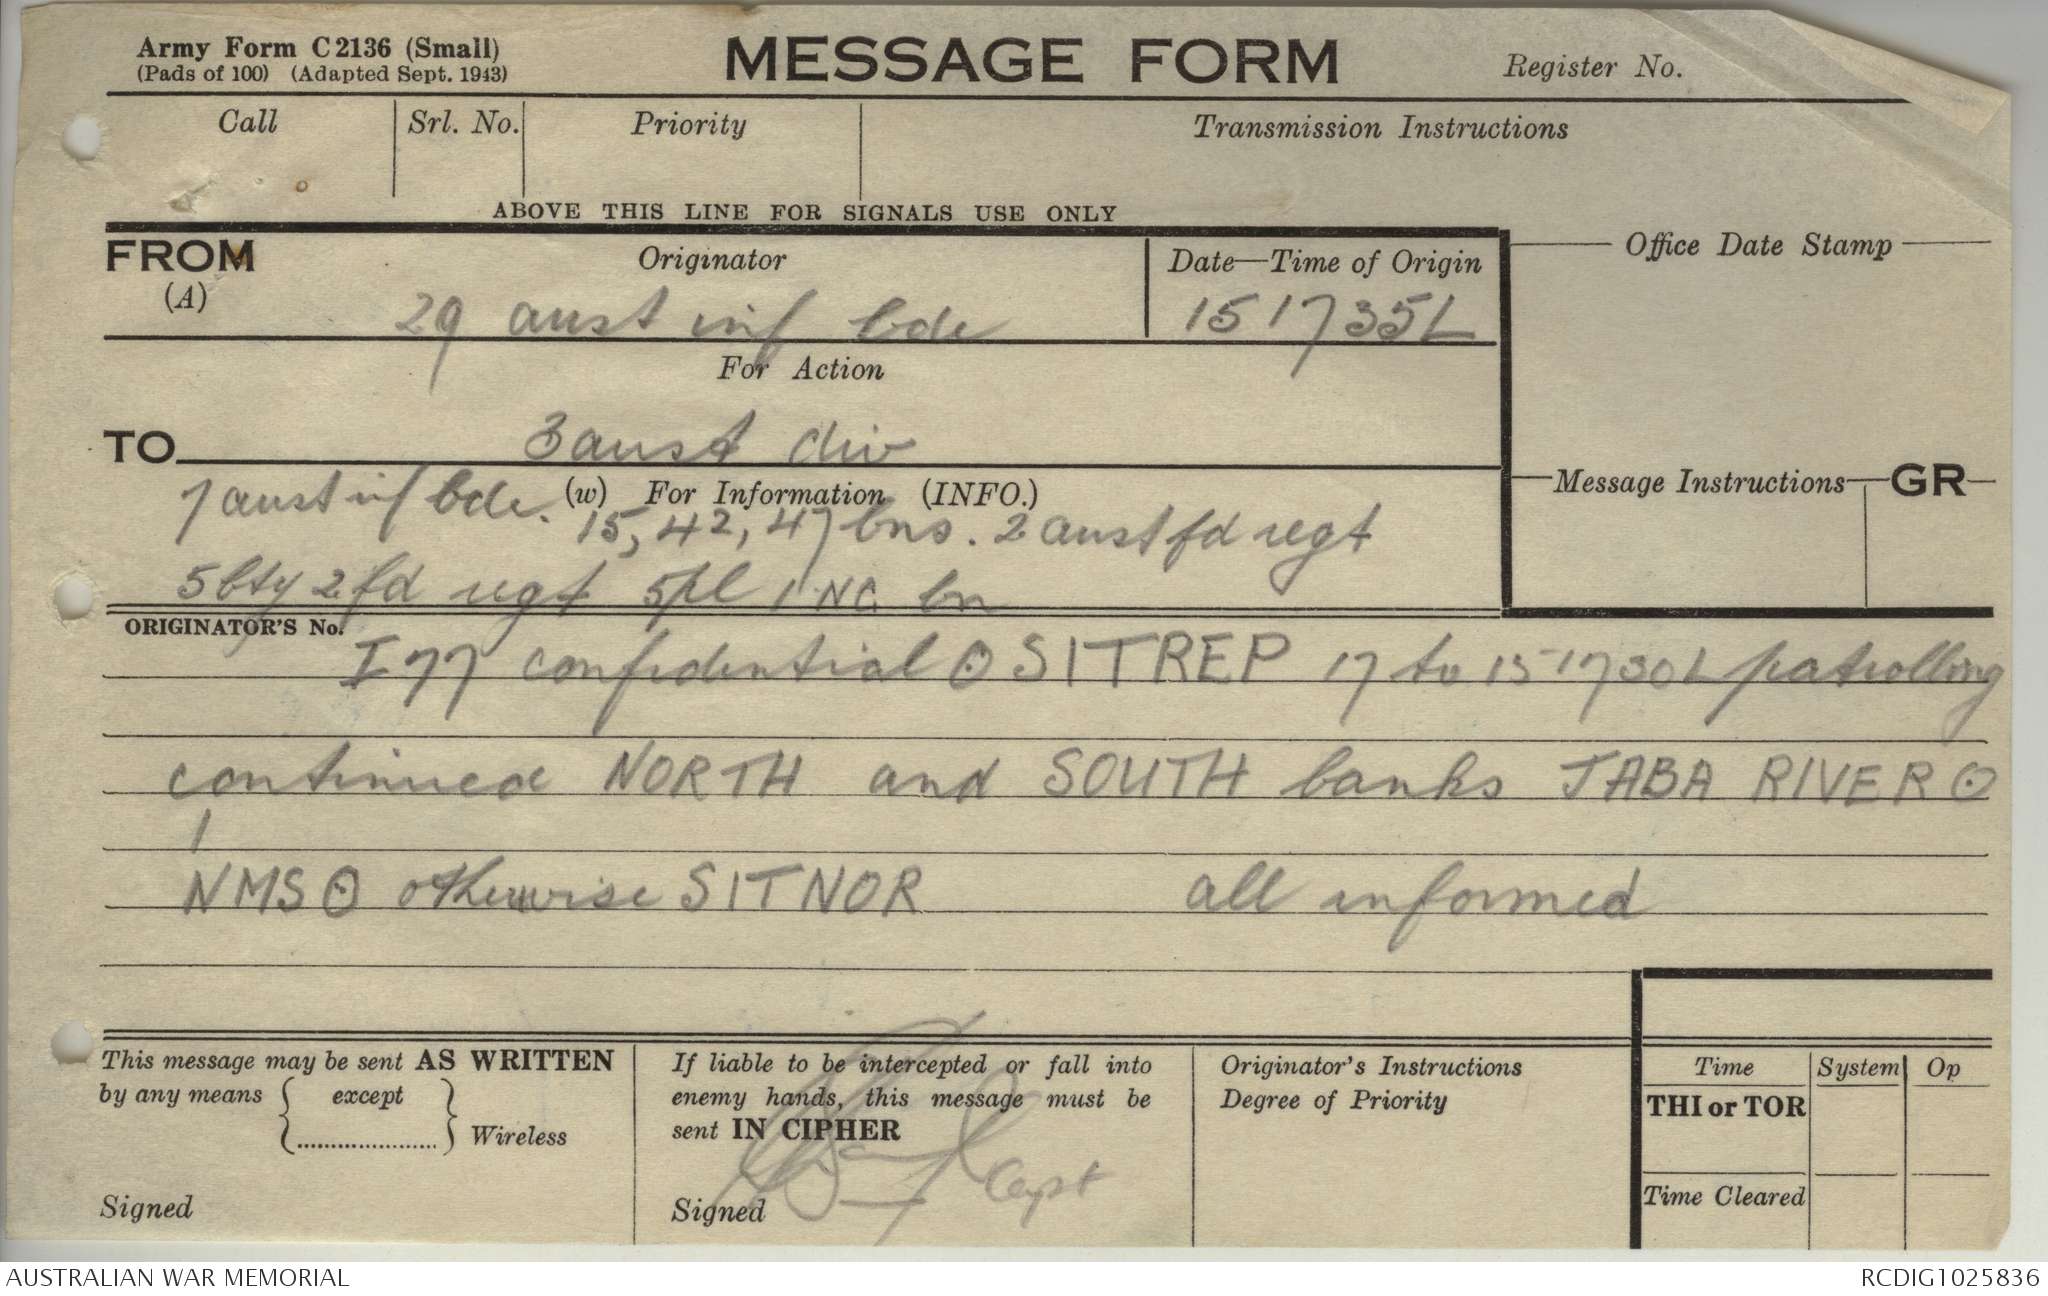 Army Form C2136 (Small)
(Pads of 100) (Adapted Sept. 1943)
MESSAGE FORM
Register No.
Call
Srl. No.
Priority
Transmission Instructions
ABOVE THIS LINE FOR SIGNALS USE ONLY
FROM
(A)
Originator
Date—Time of Origin
Office Date Stamp
29 aust inf bde
151735L
For Action
TO
3 aust div
(w) For Information (INFO.)
Message Instructions
GR
7 aust inf bde. 15, 42, 47 bns. 2 aust fd regt
5 bty 2 fd regt 5 pl 1 NG bn
ORIGINATOR'S No.
I77 confidential ⊙ SITREP 17 to 151730L patrolling
continued NORTH and SOUTH banks JABA RIVER ⊙
1
NMS ⊙ otherwise SITNOR all informed
This message may be sent AS WRITTEN
by any means { except
.....................} Wireless
Signed
If liable to be intercepted or fall into
enemy hands, this message must be
sent IN CIPHER
Signed
Capt
Originator's Instructions
Degree of Priority
Time
System
Op
THI or TOR
Time Cleared
AUSTRALIAN WAR MEMORIAL
RCDIG1025836